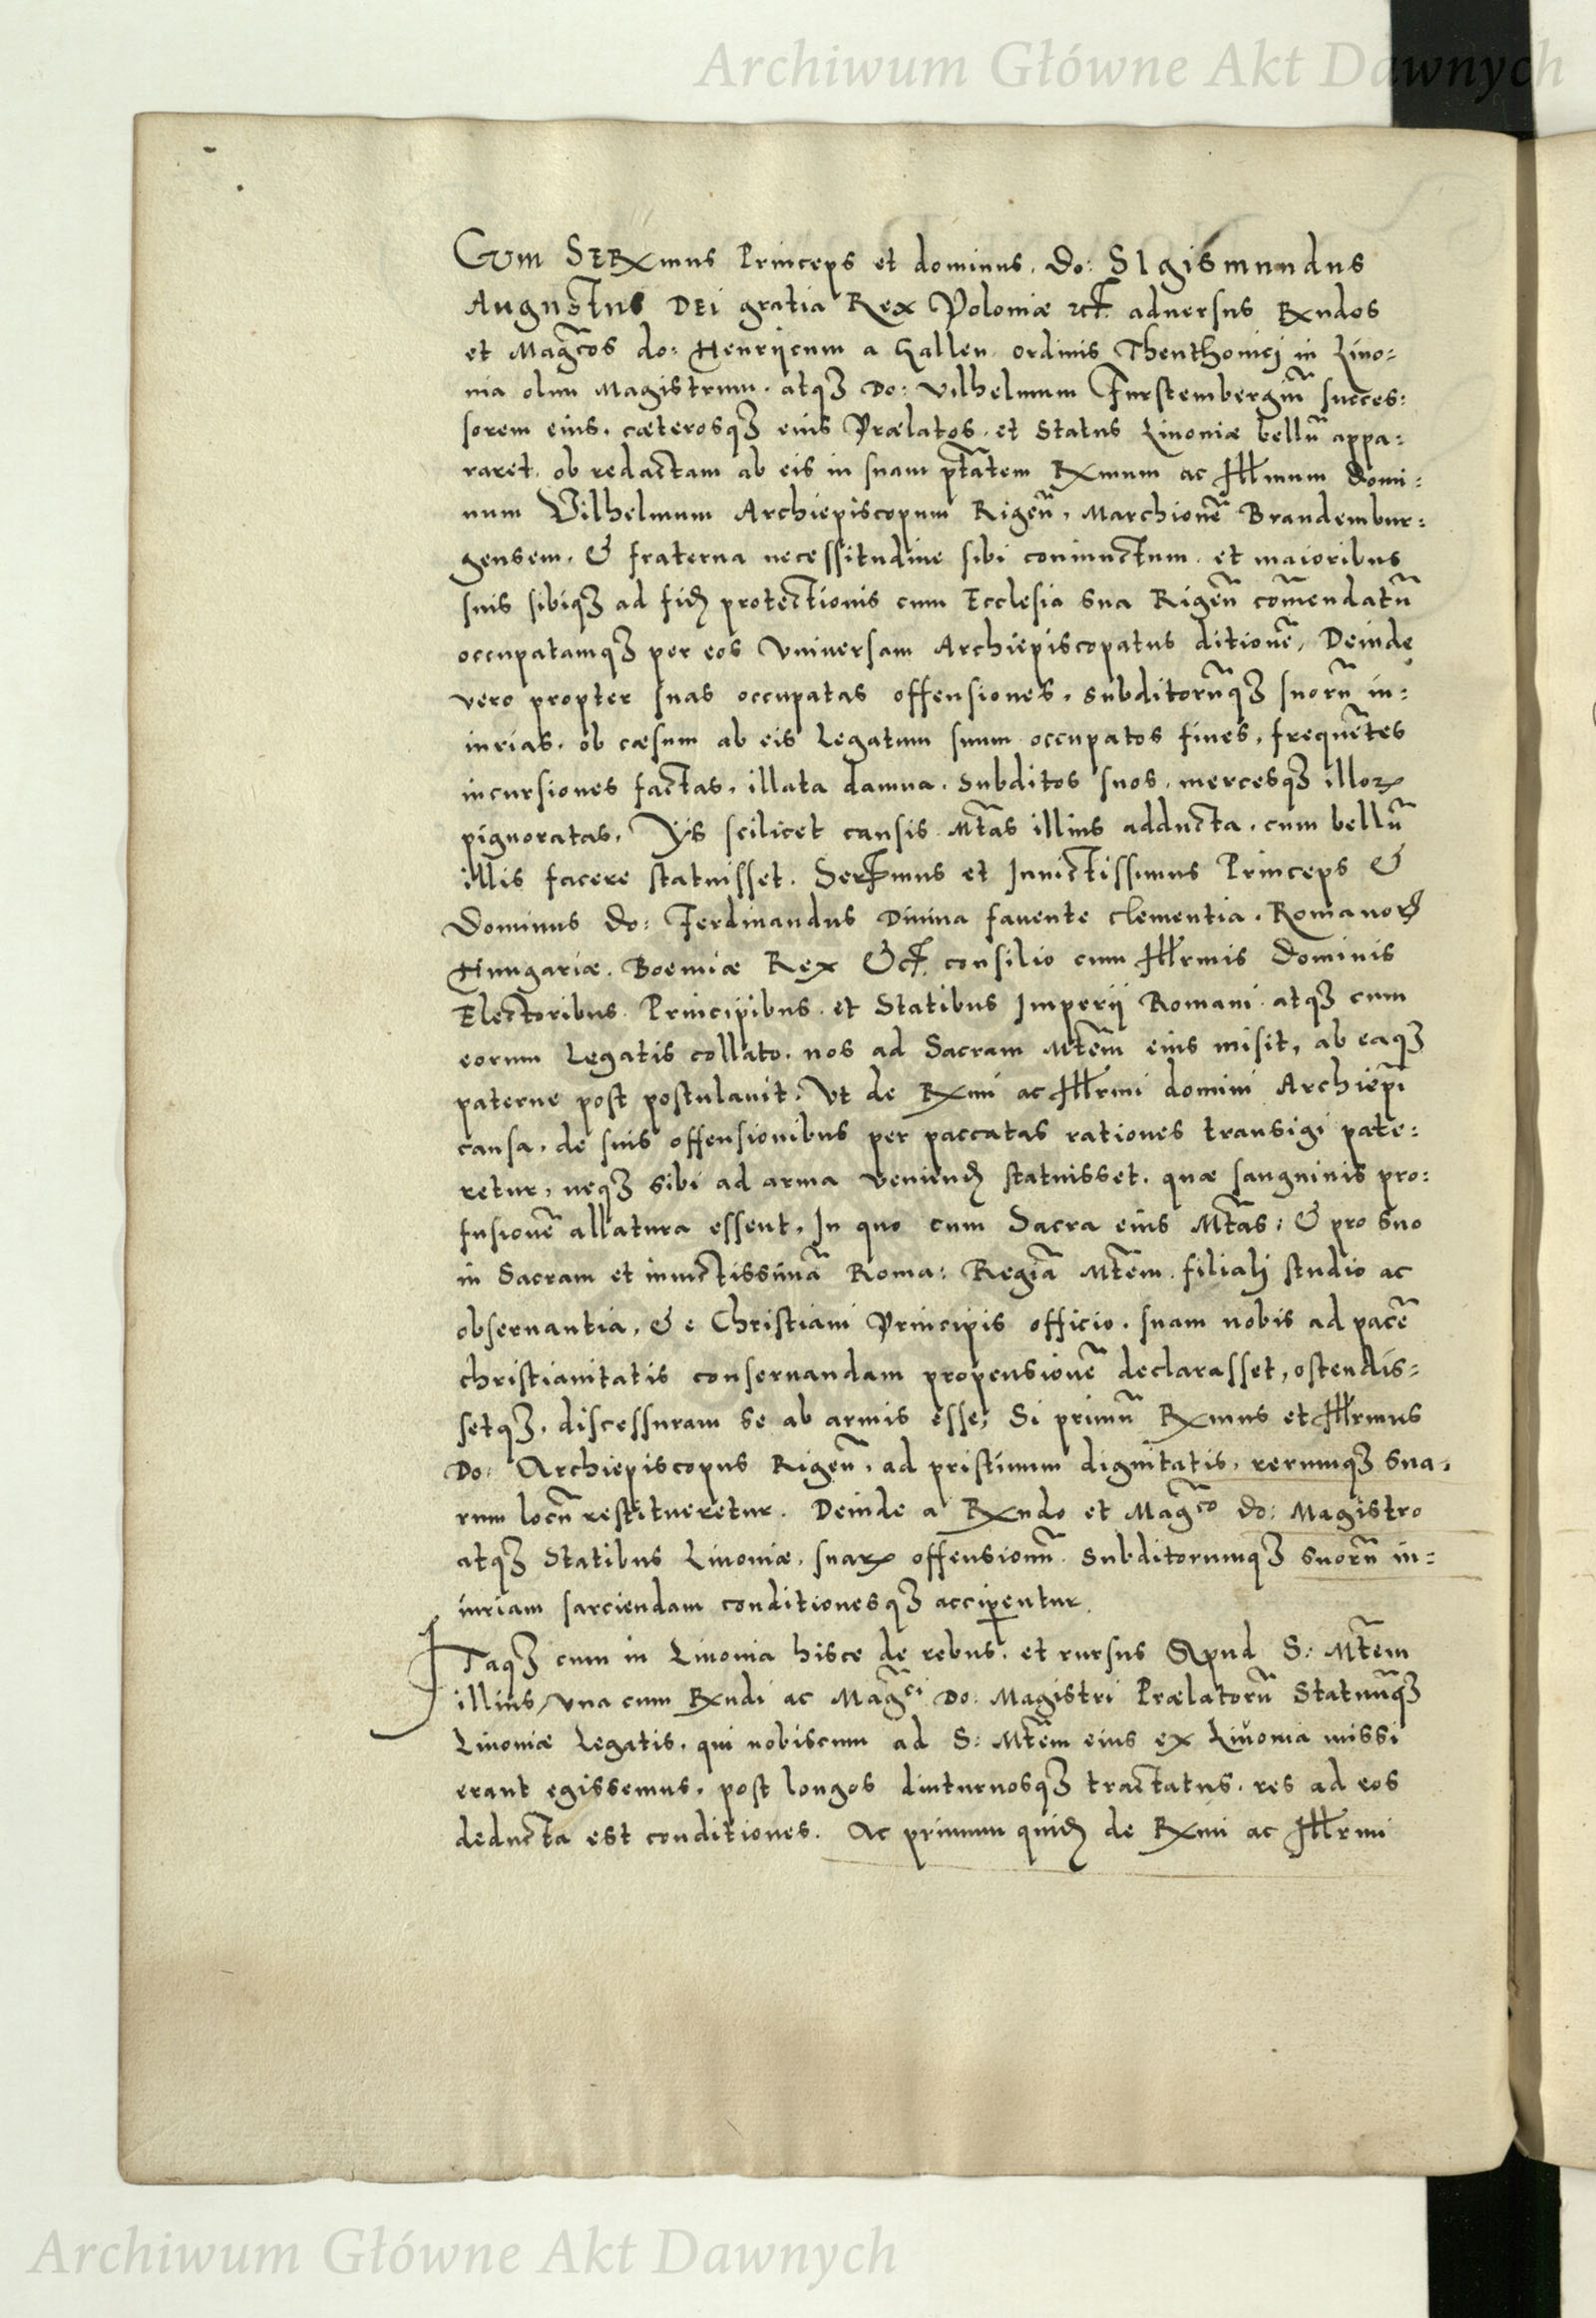 Archiwum Główne Akt Dawnych
Cum SERxmus Princeps et dominus, do: SIgismundus
Augustus DEI gratia Rex Poloniæ etc. aduersus Rxndos
et Magcos do: Henrijcum a Gallen ordinis Theuthonicj in Liuo=
nia olim Magistrum, atqꝫ Do: Vilhelmum Furstembergiū succes:
sorem eius, cæterosqꝫ eius Prælatos, et Status Liuoniæ bellū appa:
raret, ob redactam ab eis in suam ptātem Rxmum ac Illmum Domi:
num Vilhelmum Archiepiscopum Rigeñ, Marchionē Brandembur:
gensem, & fraterna necessitudine sibi coniunctum, et maioribus
suis sibiqꝫ ad fidꝫ protectionis cum Ecclesia sua Rigeñ comendatū
occupatamqꝫ per eos Vniuersam Archiepiscopatus ditionē, Deinde
vero propter suas occupatas offensiones, subditorūqꝫ suorū in:
iurias, ob cæsum ab eis Legatum suum occupatos fines, frequētes
incursiones factas, illata damna, subditos suos, mercesqꝫ illoꝝ
pignoratas, Ijs scilicet causis Mtās illius adducta, cum bellū
illis facere statuisset. Serxmus et Inuictissimus Princeps &
Dominus do: Ferdinandus Diuina fauente clementia, Romanoꝝ
Hungariæ, Boemiæ Rex &c. consilio cum Illrmis Dominis
Electoribus, Principibus, et Statibus Imperij Romani, atqꝫ cum
eorum Legatis collato, nos ad Sacram Mtēm eius misit, ab eaqꝫ
paterne post postulauit, Vt de Rxmi ac Illrmi domini Archiepi
causa, de suis offensionibus per paccatas rationes transigi pate:
retur, neqꝫ sibi ad arma veniendꝫ statuisset, quæ sanguinis pro:
fusionē allatura essent, In quo cum Sacra eius Mtās, & pro suo
in Sacram et inuictissimā Roma: Regiā Mtēm, filialj studio ac
obseruantia, & e Christiani Principis officio, suam nobis ad pacē
christianitatis conseruandam propensionē declarasset, ostendis=
setqꝫ, discessuram se ab armis esse; Si primū Rxmus et Illrmus
Do: Archiepiscopus Rigeñ, ad pristinum dignitatis, rerumqꝫ sua,
rum locū restitueretur. Deinde a Rxndo et Magco do: Magistro
atqꝫ Statibus Liuoniæ, suaꝝ offensionū subditorumqꝫ suorū in=
iuriam sarciendam conditionesqꝫ acciperentur.
ITaqꝫ cum in Liuonia hisce de rebus, et rursus Apud S: Mtēm
illius, vna cum Rxndi ac Magci Do: Magistri Prælatorū Statuūqꝫ
Liuoniæ Legatis, qui nobiscum ad S: Mtēm eius ex Liuonia missi
erant egissemus, post longos diuturnosqꝫ tractatus, res ad eos
deducta est conditiones. Ac primum quidꝫ de Rxmi ac Illrmi
Archiwum Główne Akt Dawnych